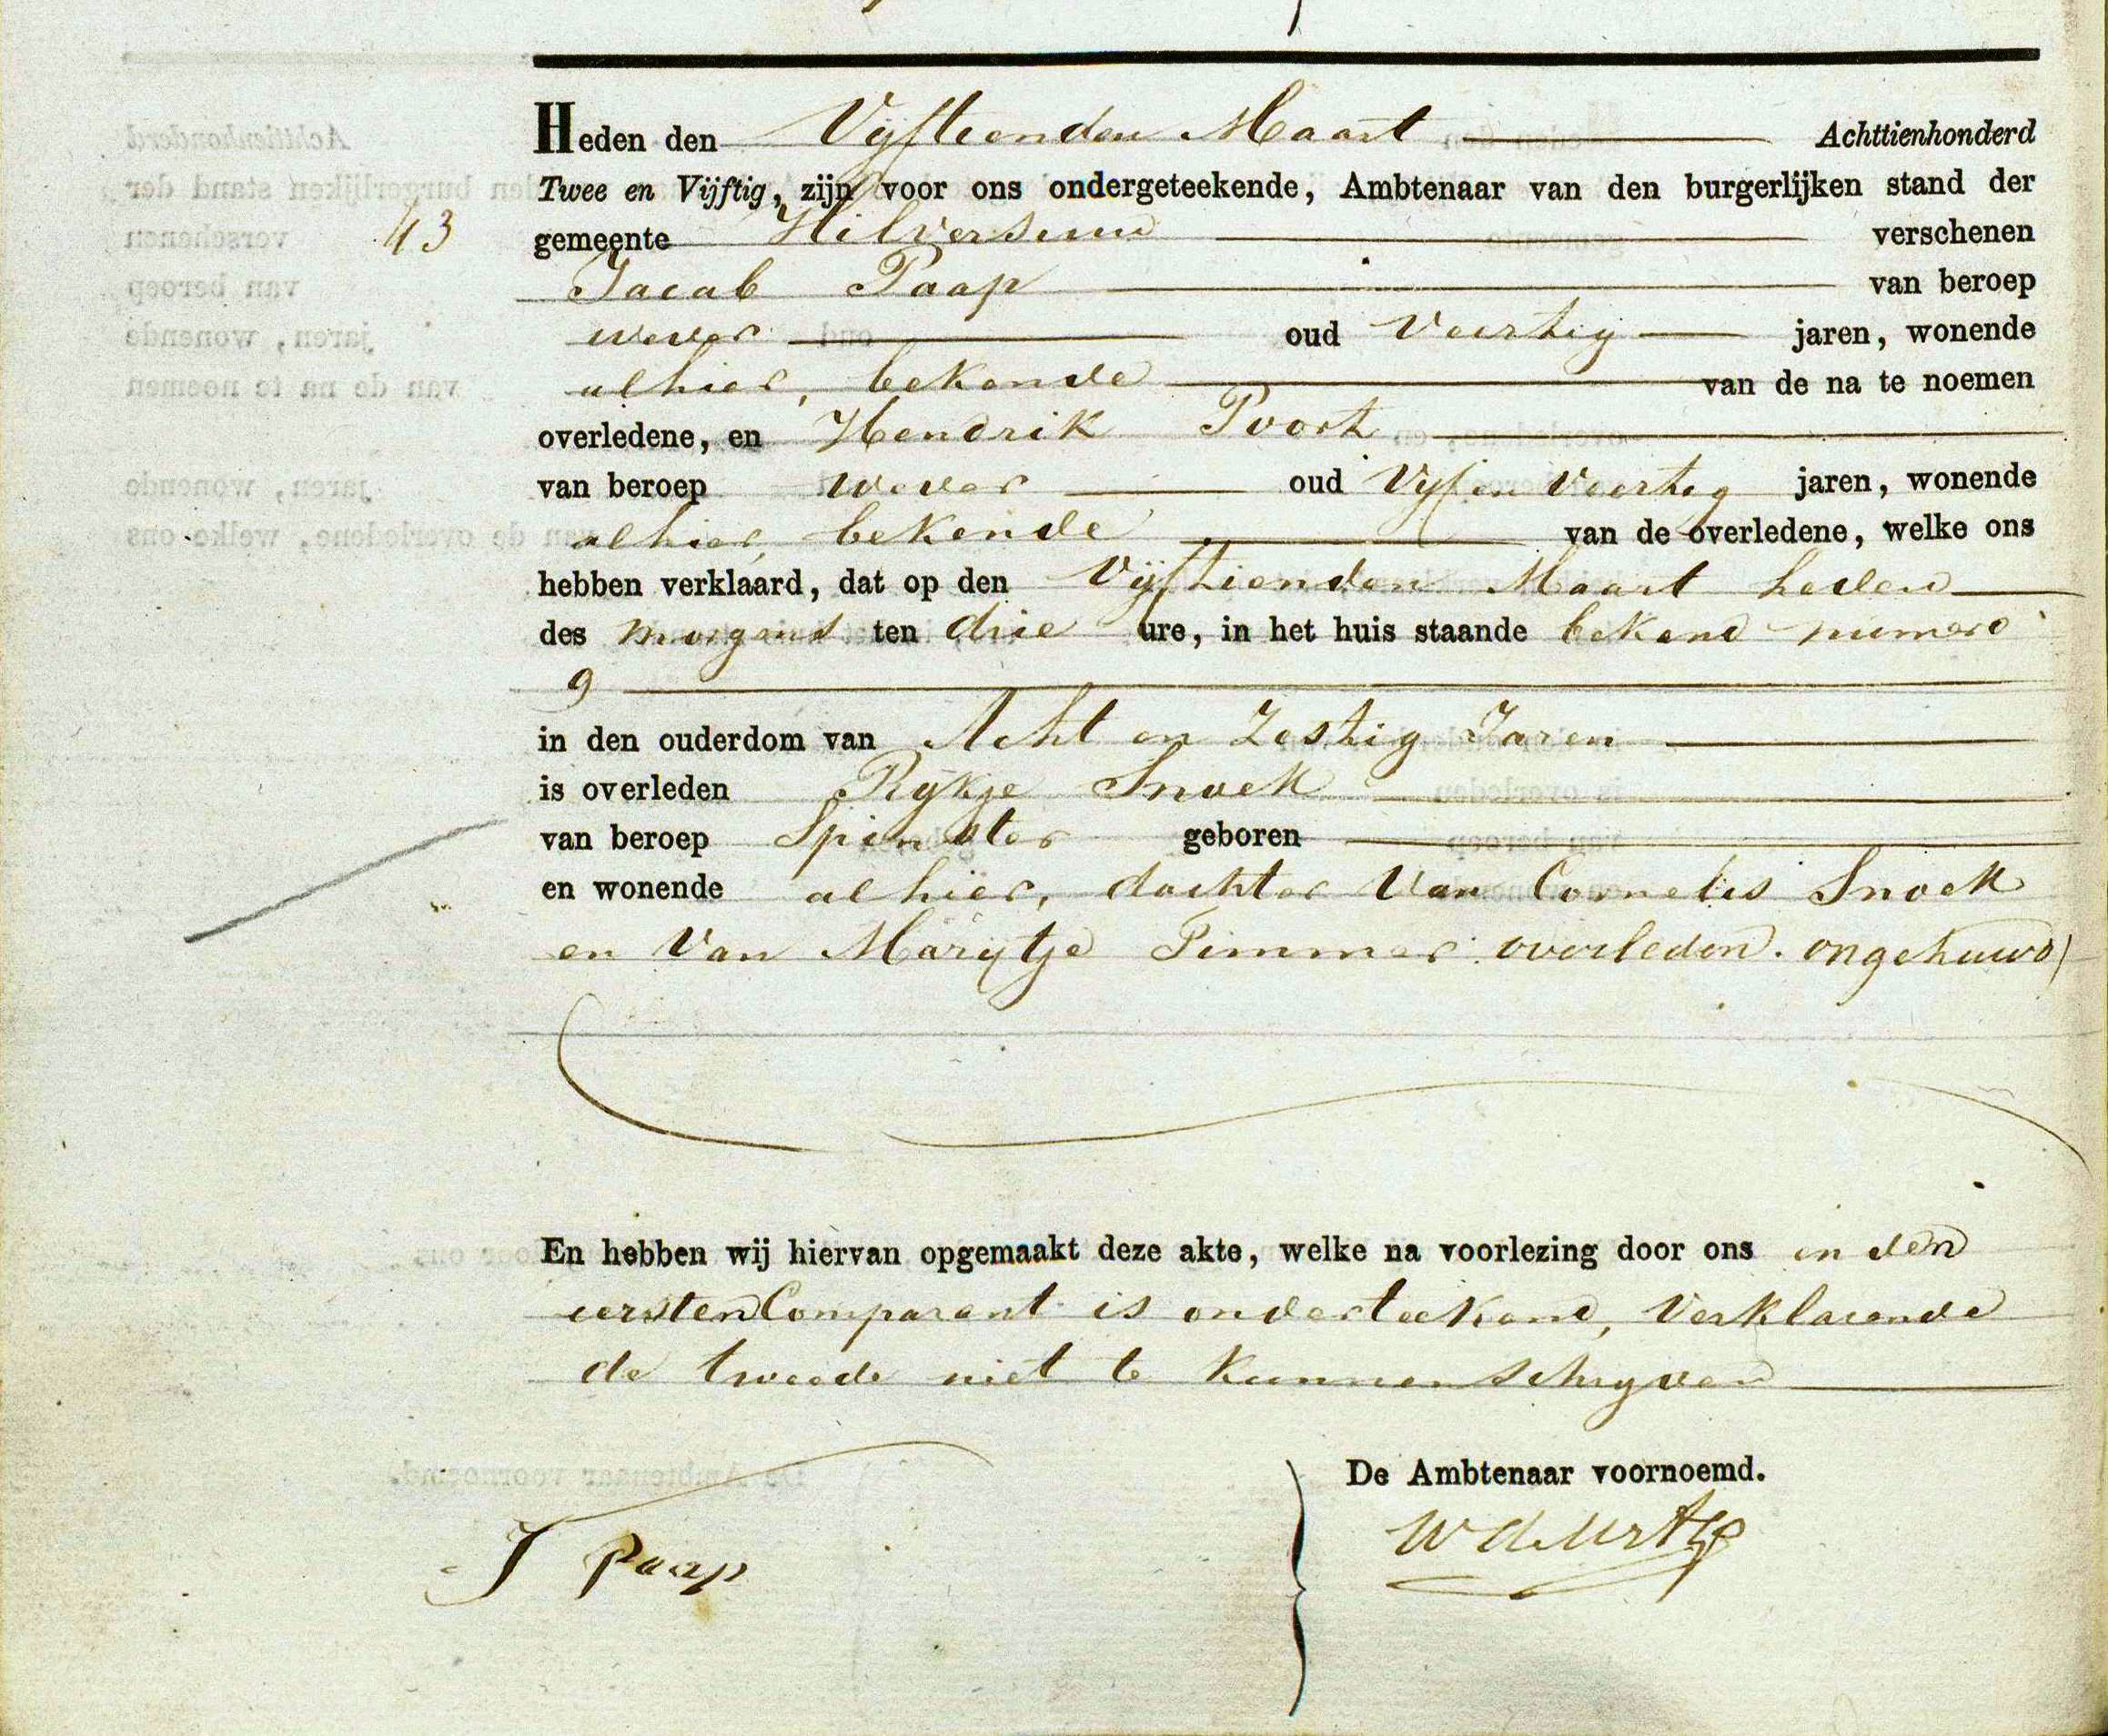 Heden den Vijftienden Maart Achttienhonderd
Twee en Vijftig, zijn voor ons ondergeteekende, Ambtenaar van den burgerlijken stand der
43 gemeente Hilversum verschenen
Jacob Paap van beroep
wever oud Veertig jaren, wonende
alhier, bekende van de na te noemen
overledene, en Hendrik Poort
van beroep wever oud Vijf en Veertig jaren, wonende
alhier, bekende van de overledene, welke ons
hebben verklaard, dat op den Vijftienden Maart heden
des morgens ten drie ure, in het huis staande bekend numero
9
in den ouderdom van Acht en Zestig Jaren
is overleden Rijkje Snoek
van beroep Spinster geboren
en wonende alhier, dochter Van Cornelis Snoek
en Van Marijtje Pimmer overleden. ongehuwd
En hebben wij hiervan opgemaakt deze akte, welke na voorlezing door ons en den
eersten Comparant is onderteekend, Verklarende
de tweede niet te kunnen schrijven
De Ambtenaar voornoemd.
J Paap